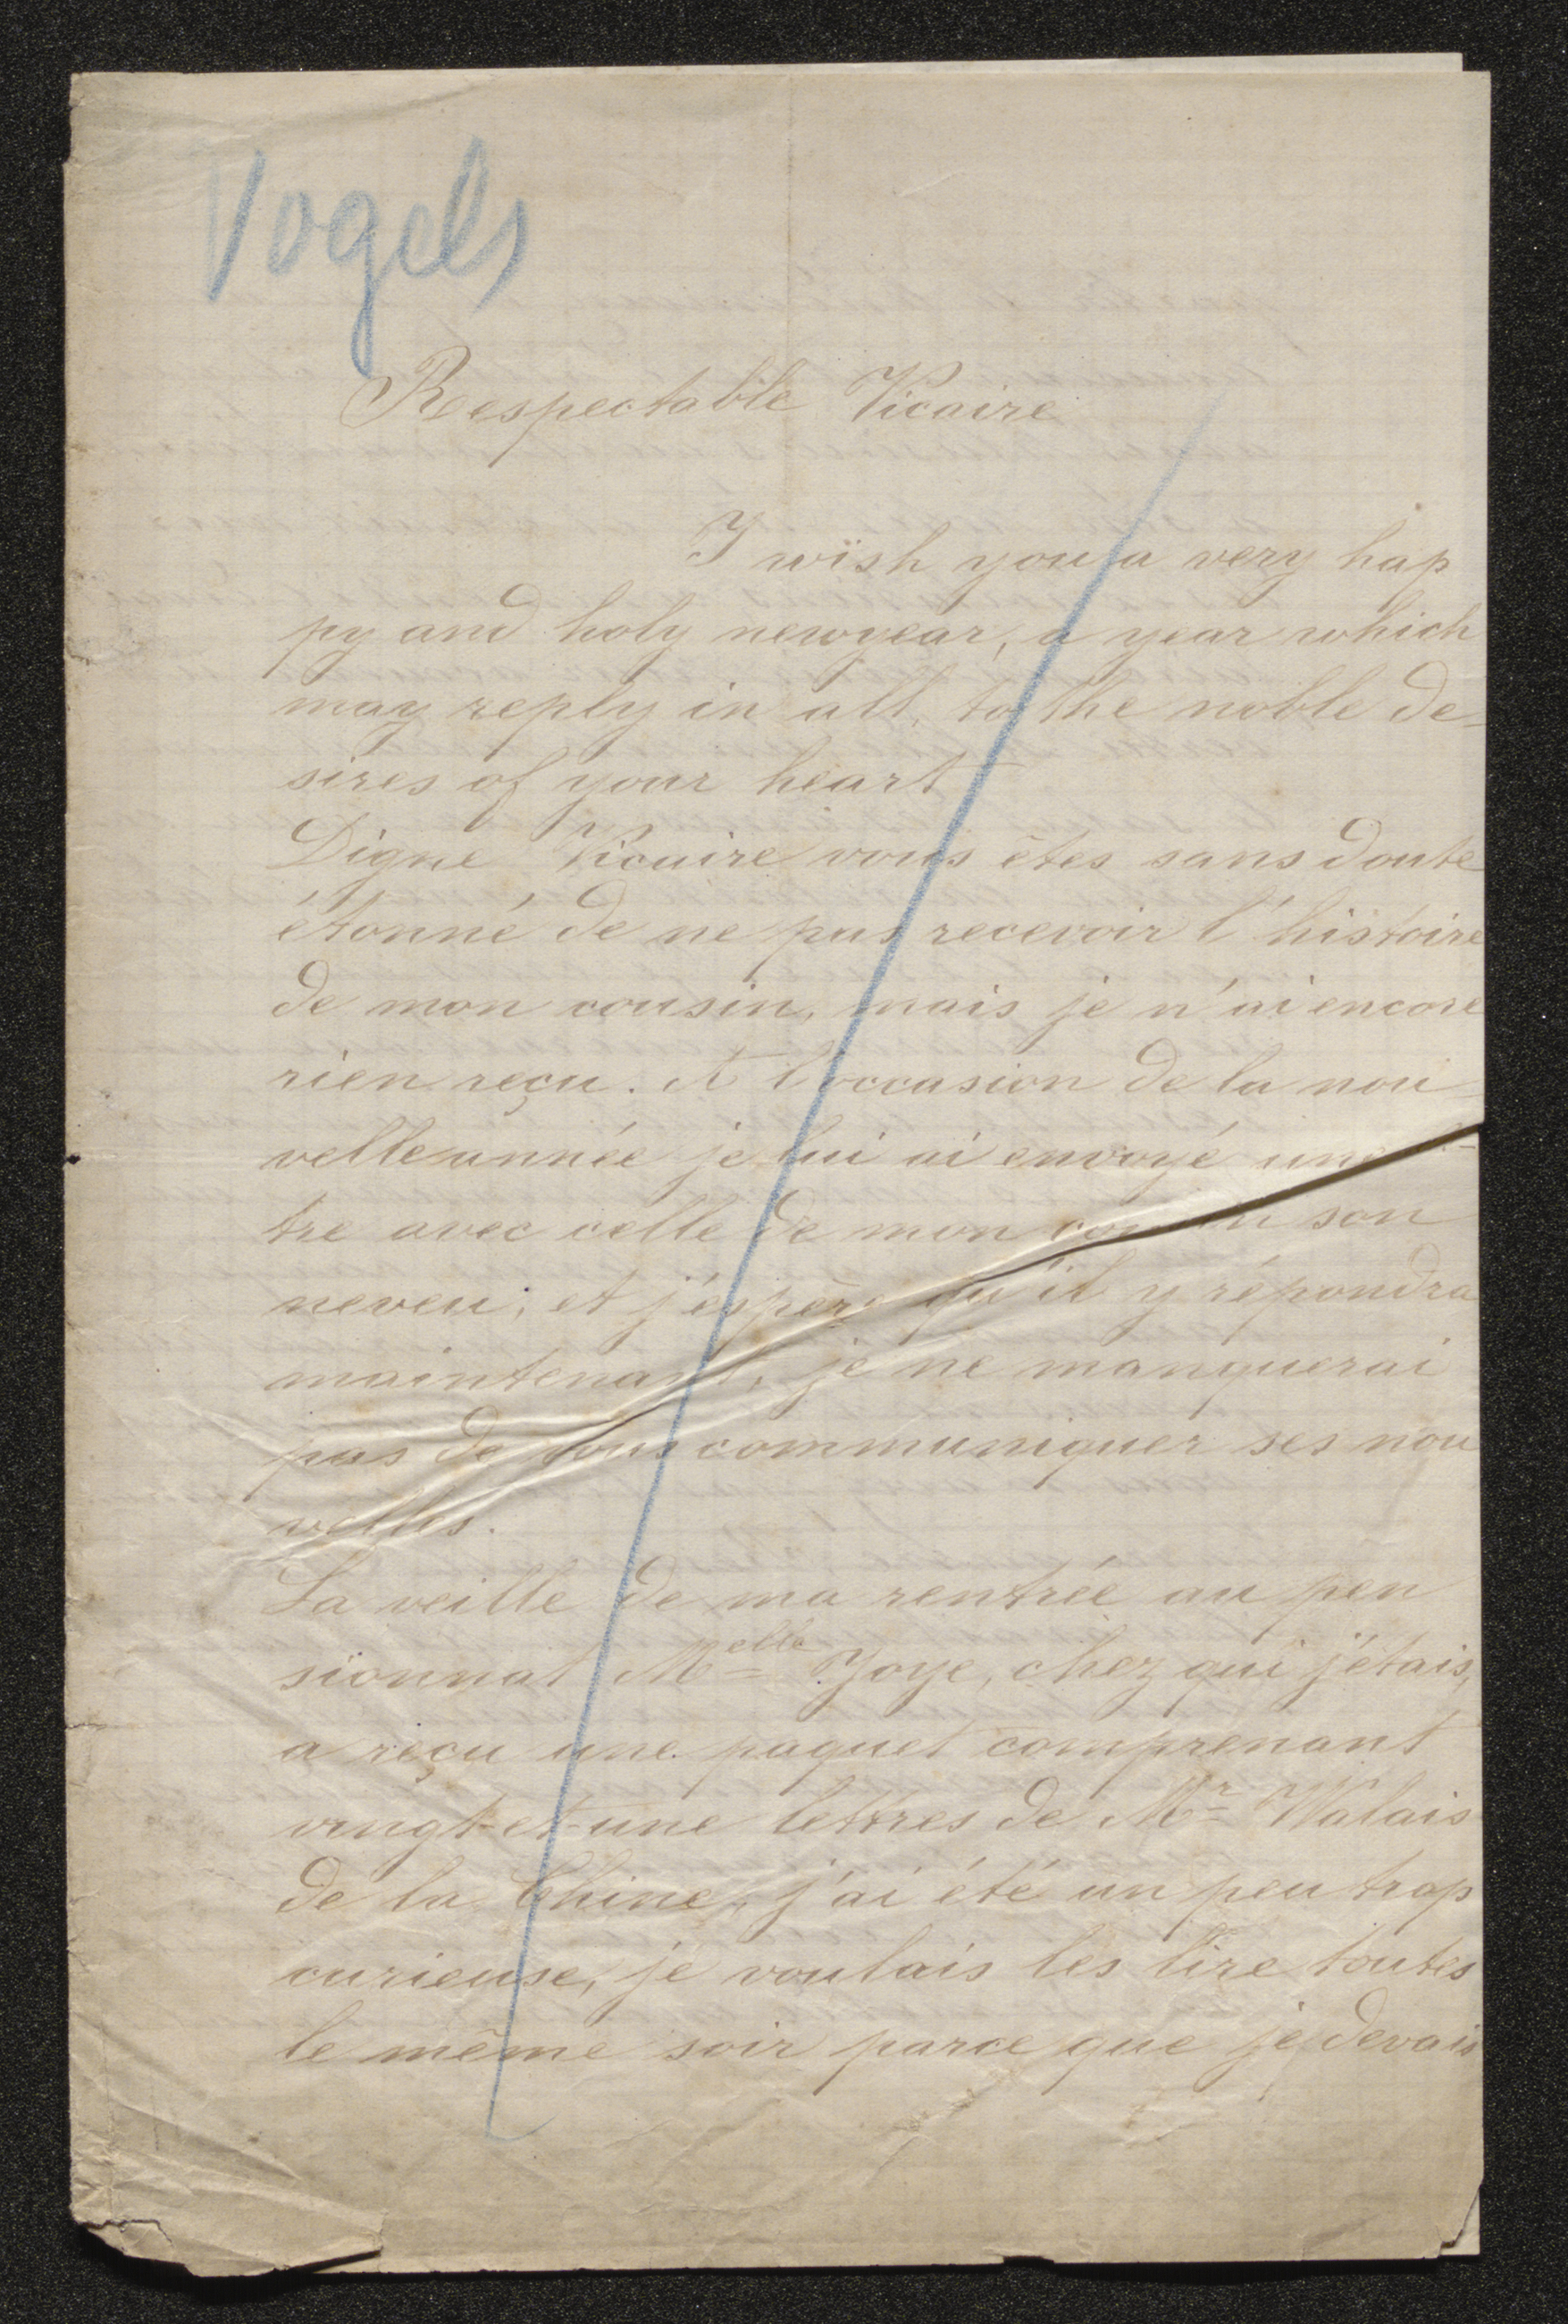 Vogels
Respectable Vicaire
I wish you a very hap
py and holy newyear, a year which
may reply in all, to the noble de-
sires of your heart
Digne Vicaire vous êtes sans doute
étonné de ne pas recevoir l'histoire
de mon cousin, mais je n'ai encore
rien reçu. A l'occasion de la nou
velle année je lui ai envoyé une
tre avec celle de mon cousin son
neveu; et j'éspère qu'il y répondra
maintenant, je ne manquerai
pas de vous communiquer ses nou
velles.
La veille de ma rentrée au pen
sionnat Melle Joye, chez qui j'étais,
a reçu une paquet comprenant
vingt-et-une lettres de Mr Walais
de la Chine, j'ai été un peu trop
curieuse, je voulais les lire toutes
le même soir parce que je devais